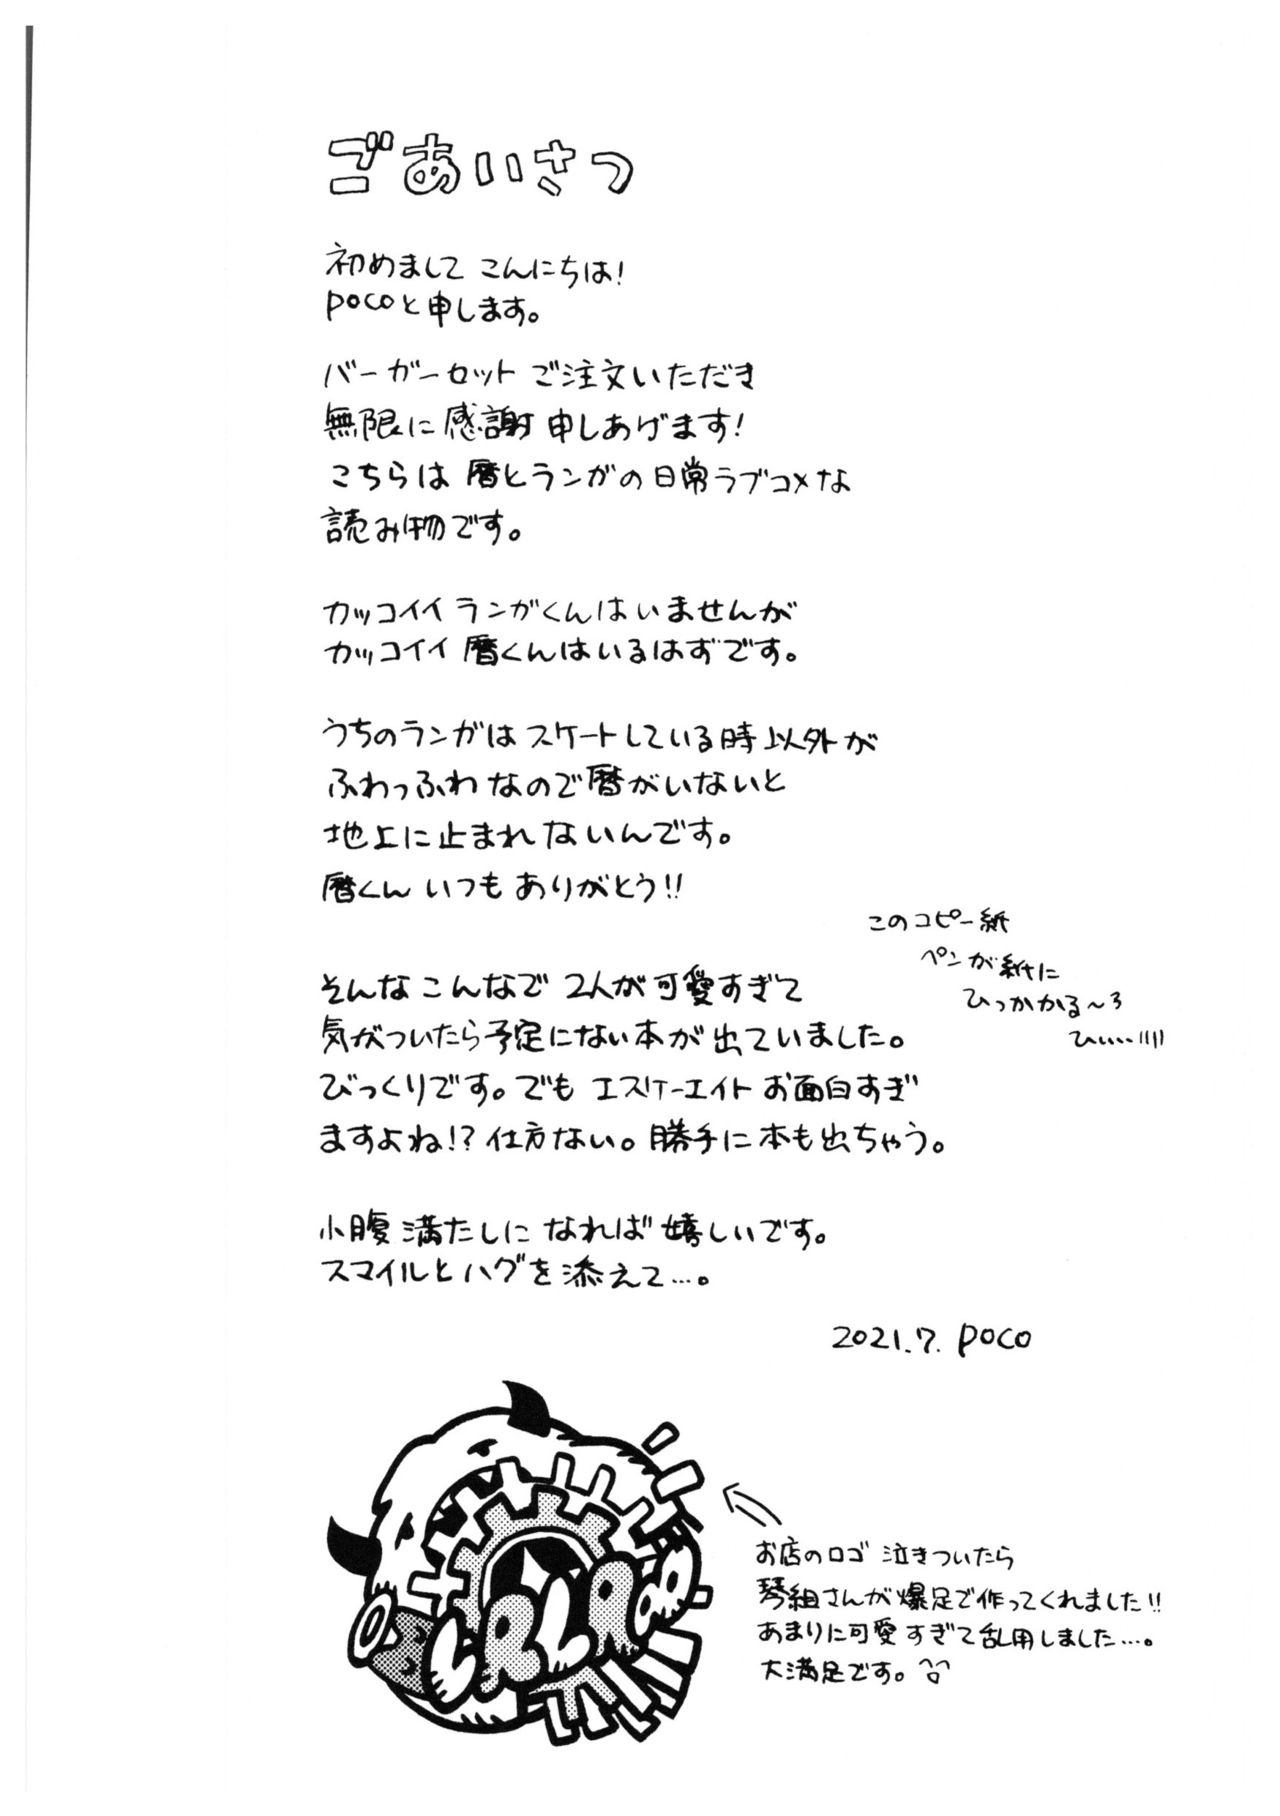 ごあいさつ
初めまして こんにちは!
pocoと申します。
バーガーセット ご注文いただき
無限に感謝申しあげます!
こちらは 暦とランガの日常ラブコメな
読み物です。
カッコイイ ランガくんはいませんが
カッコイイ 暦くんはいるはずです。
うちのランガは スケートしている時以外が
ふわっふわ なので暦がいないと
地上に止まれ ないんです。
暦くん いつも ありがとう!!
このコピー紙
ペンが紙に
ひっかかる〜ろ
ひぃ…
そんな こんなで 2人が可愛すぎて
気がついたら予定にない本が出ていました。
びっくりです。でも エスケーエイト お面白すぎ
ますよね!? 仕方ない。勝手に本も出ちゃう。
小腹満たしに なれば嬉しいです。
スマイルとハグを添えて…。
2021.7. poco
お店のロゴ 泣きついたら
琴組さんが爆足で作ってくれました!!
あまりに可愛すぎて乱用しました…。
大満足です。
LRLR